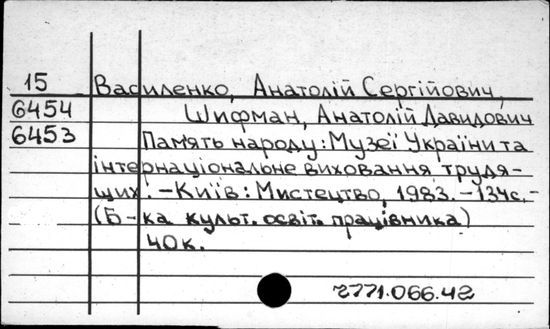 15 Василенко, Анатолій Сергійович,
6454 Шифман, Анатолій Давидович
6453 Память народу: Музеї України та
інтернаціональне виховання трудя-
щих. - Київ: Мистецтво, 1983. - 134с. -
(Б-ка культ. освіт. працівника)
40к.
2771.066.42